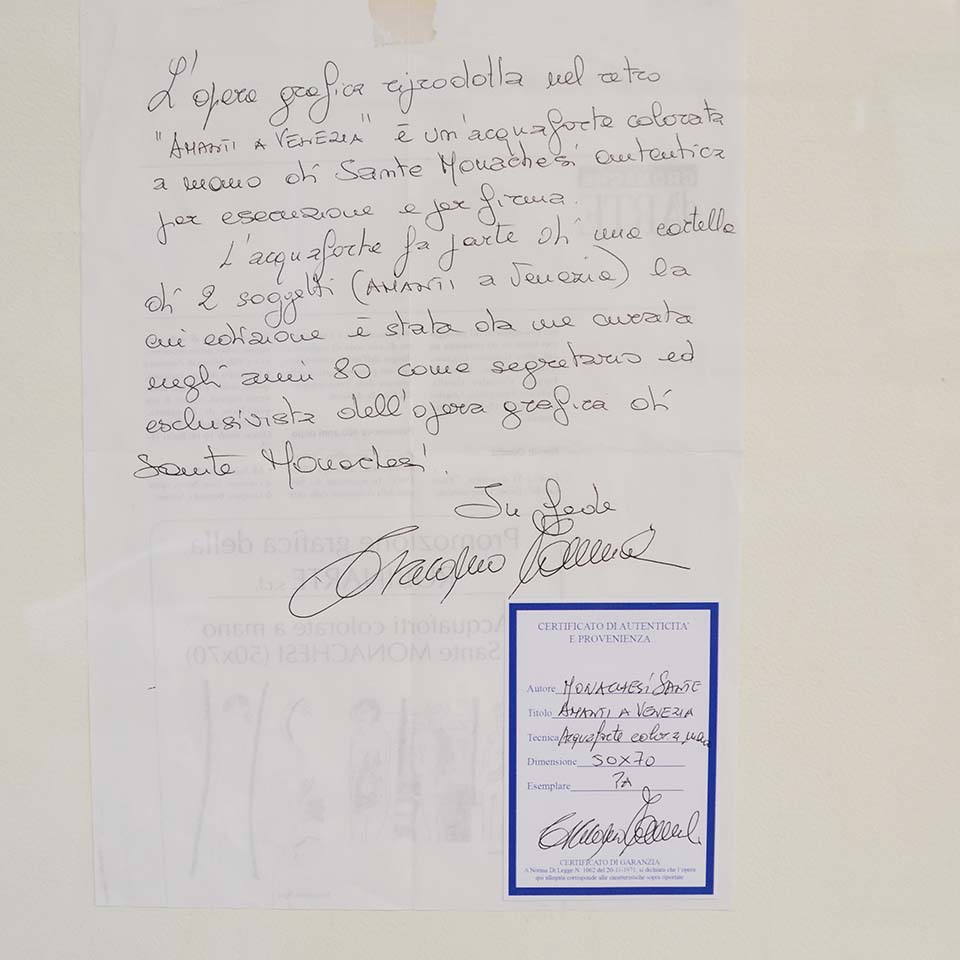 L'opera grafica riprodotta nel retro
"AMANTI A VENEZIA" è un'acquaforte colorata
a mano di Sante Monachesi autentica
per esecuzione e per firma.
L'acquaforte fa parte di una cartella
di 2 soggetti (AMANTI a Venezia) la
cui edizione è stata da me curata
negli anni 80 come segretario ed
esclusivista dell'opera grafica di
Sante Monachesi.
In fede
Promozione grafica della
Acquaforti colorate a mano
Sante MONACHESI (50x70)
CERTIFICATO DI AUTENTICITA'
E PROVENIENZA
Autore MONACHESI SANTE
Titolo AMANTI A VENEZIA
Tecnica Acquaforte color a mano
Dimensione 50X70
Esemplare PA
CERTIFICATO DI GARANZIA
A Norma Di Legge N. 1062 del 20-11-1971, si dichiara che l'opera
qui allegata corrisponde alle caratteristiche sopra riportate